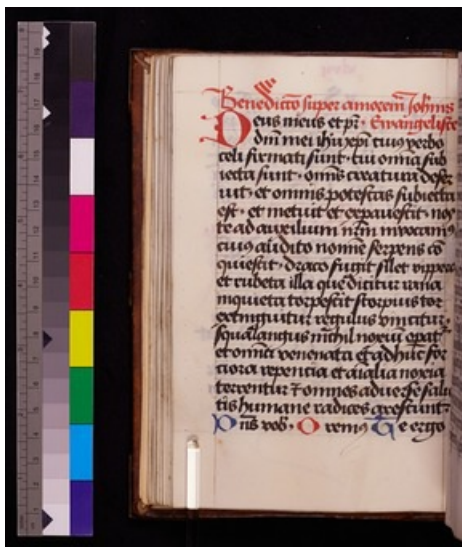 Benedictō super amorem Joh̄nis
Deus meus et pr̄ · Ewangeliste
dn̄i mei ih̄u xp̄i cuiꝰ verbo
celi firmati sunt · tui omnia sub
iecta sunt · om̄is creatura deser
uit · et omnis potestas subiecta
est · et metuit et expauescit · nos
te ad auxilium nr̄m inuocamꝰ
cuiꝰ audito nomīe serpens cō
quiescit · draco fugit silet vipera
et rubeta illa que dicitur rana
inquieta torpescit scorpius tor
extinguitur regulus vincitur ·
spallangius nichil noxiū opat̄
et omīa venenata et adhuc for
ciora repencia et aīalia noxia
terrentur ⁊ omnes aduerse salu
tis humane radices arescunt ·
Dn̄s vob̄ · Oremꝰ Te ergo